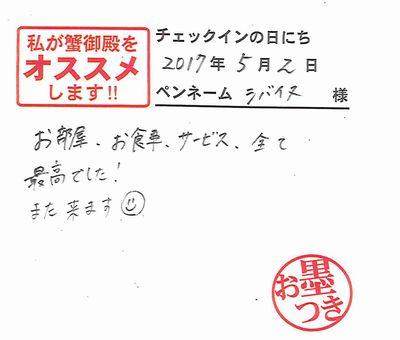 私が蟹御殿を
オススメ
します!!
チェックインの日にち
2017年5月2日
ペンネーム シバイヌ 様
お部屋、お食事、サービス、全て
最高でした!
また来ます
お墨
つき